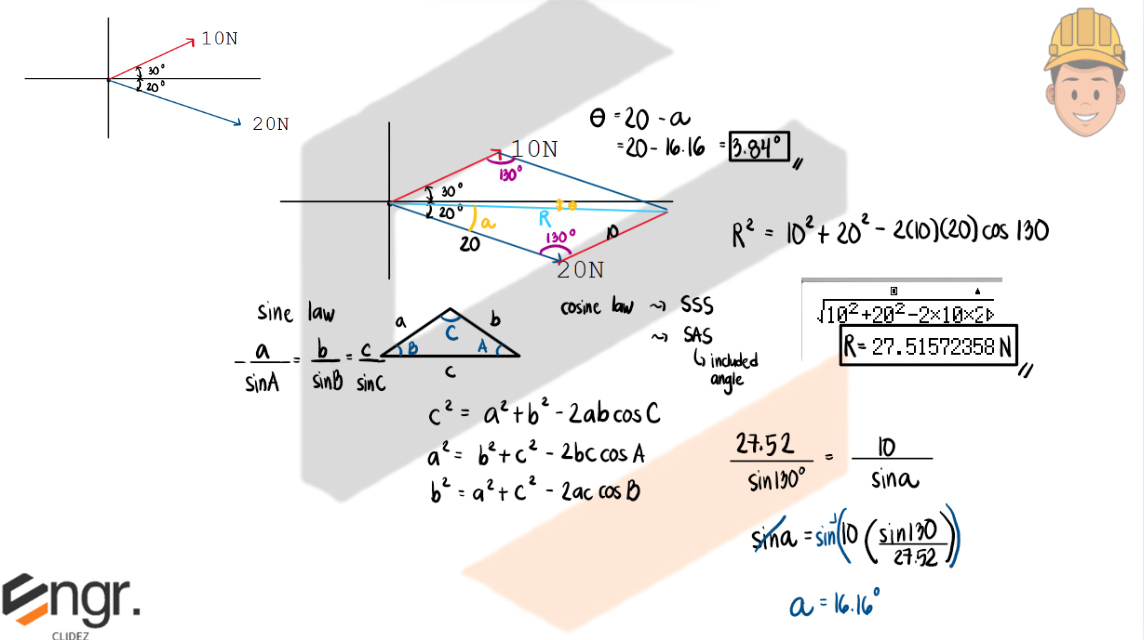 10N
30°
20°
20N
θ = 20 - a
= 20 - 16.16 = 3.84° //
10N
130°
30°
20°
a
R
20
130°
10
20N
R² = 10² + 20² - 2(10)(20) cos 130
√10²+20²-2×10×2
R = 27.51572358 N //
sine law
a/sinA = b/sinB = c/sinC
a
b
C
B
A
c
cosine law ⤳ SSS
⤳ SAS
↳ included
angle
c² = a² + b² - 2ab cos C
a² = b² + c² - 2bc cos A
b² = a² + c² - 2ac cos B
27.52/sin130° = 10/sin a
sin a = sin⁻¹(10 (sin130/27.52))
a = 16.16°
Engr.
CLIDEZ